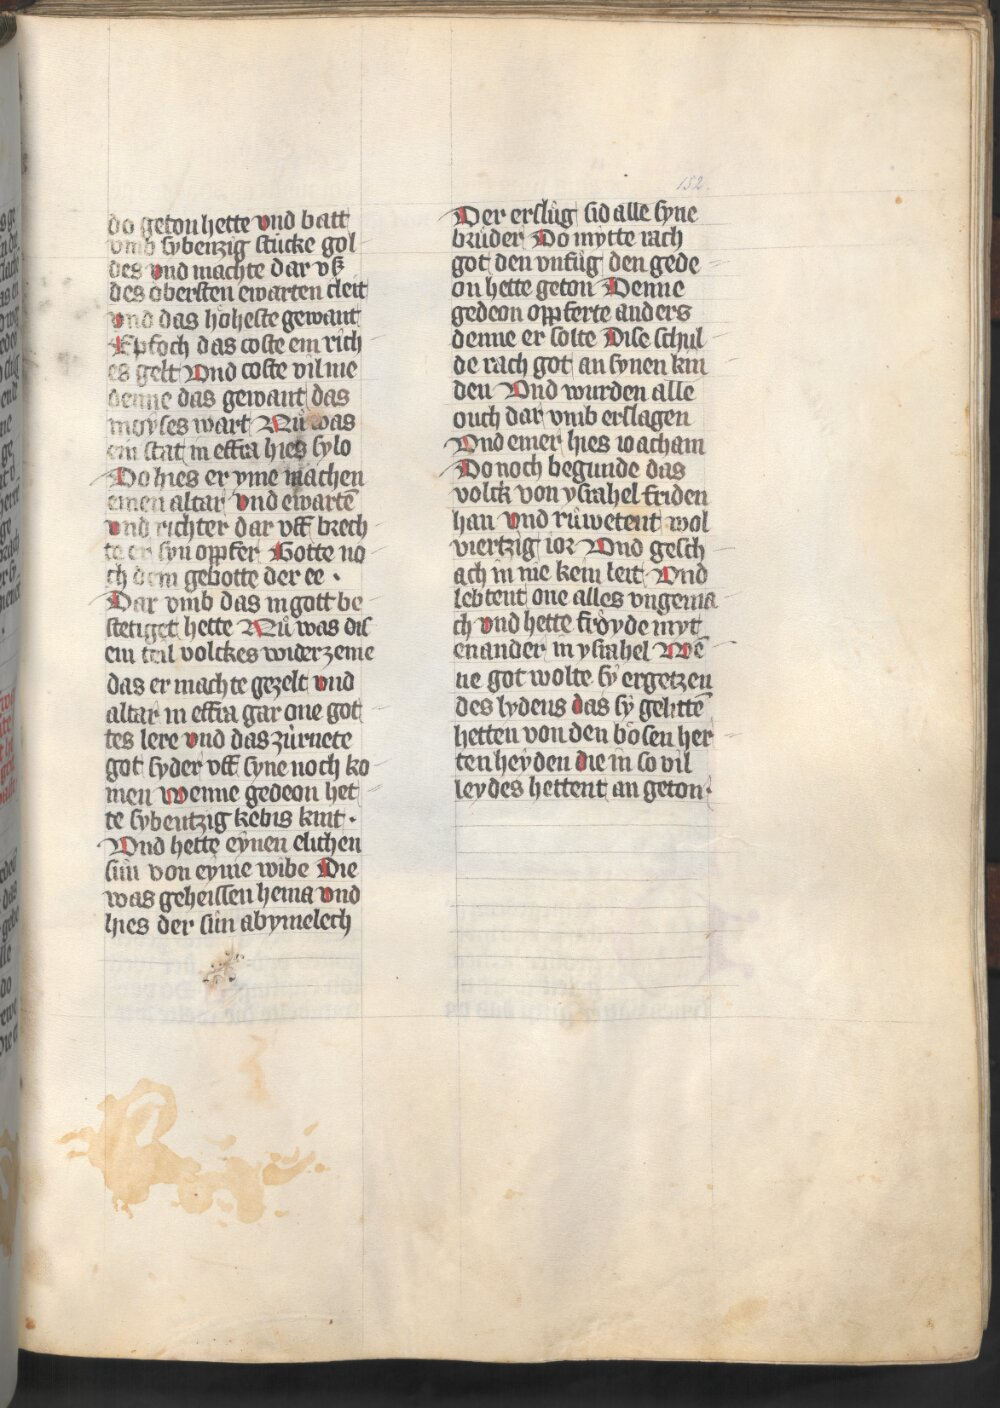 152
do geton hette vnd batt
vmb sybenzig stücke gol
des vnd machte dar vß
des obersten ewarten cleit
vnd das höheste gewant
Epfoch das coste ein rich
es gelt Vnd coste vil me
denne das gewant das
moyses wart Nů was
ein stat in effra hies sylo
Do hies er yme machen
einen altar vnd ewartē
vnd richter dar vff brech
te er syn opfer Gotte no
ch dem gebotte der ee .
Dar vmb das in gott be
stetiget hette Nů was dis
ein teil volckes widerzeme
das er machte gezelt vnd
altar in effra gar one got
tes lere vnd das zůrnete
got syder vff syne noch ko
men wenne gedeon het
te sybentzig kebis kint .
Vnd hette eynen elichen
sůn von eyme wibe Die
was geheissen hema vnd
hies der sůn abymelech
Der erslůg sid alle syne
brůder Do mytte rach
got den vnfůg den gede
on hette geton Denne
gedeon opferte anders
denne er solte Dise schul
de rach got an synen kin
den Vnd wurden alle
ouch dar vmb erslagen
Vnd einer hies ioacham
Do noch begunde das
volck von ysrahel friden
han vnd růwetent wol
viertzig ior Vnd gesch
ach in nie kein leit Vnd
lebtent one alles vngema
ch vnd hette fröyde myt
enander in ysrahel Wē
ne got wolte sÿ ergetzen
des lydens das sÿ gelittē
hetten von den bösen her
ten heyden die in so vil
leydes hettent an geton .